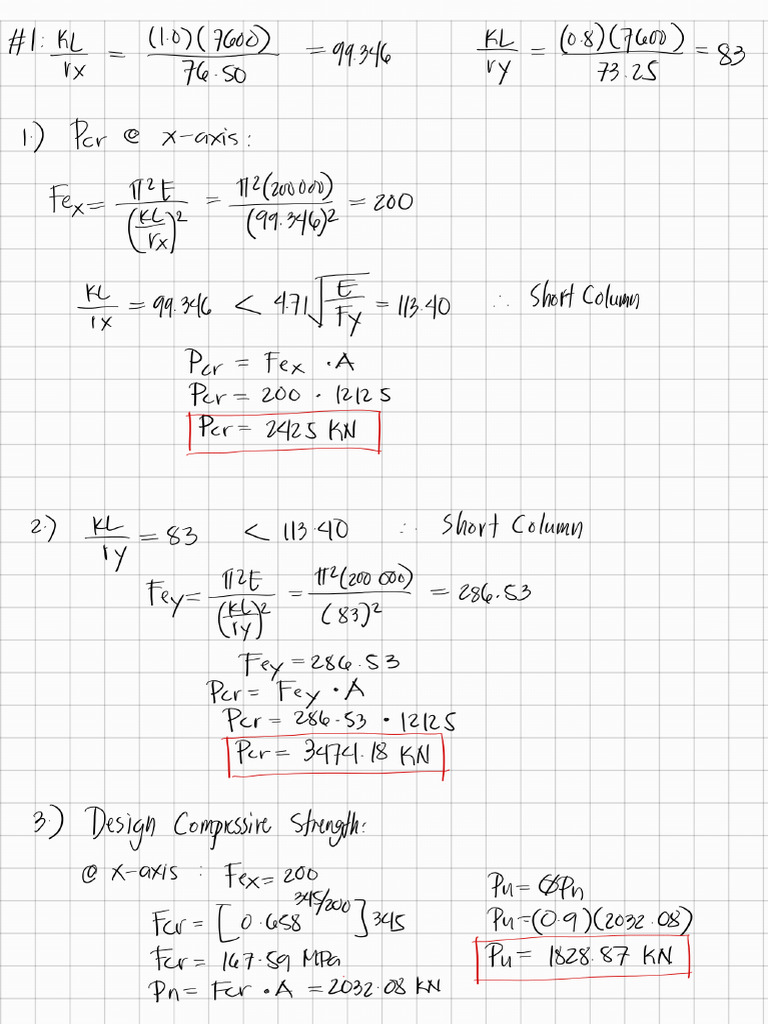 #1: KL/rx = (1.0)(7600)/76.50 = 99.346    KL/ry = (0.8)(7600)/73.25 = 83
1.) Pcr @ x-axis:
Fex = π²E/(KL/rx)² = π²(200000)/(99.346)² = 200
KL/rx = 99.346 < 4.71√(E/Fy) = 113.40 ∴ Short Column
Pcr = Fex · A
Pcr = 200 · 12125
Pcr = 2425 KN
2.) KL/ry = 83 < 113.40 ∴ Short Column
Fey = π²E/(KL/ry)² = π²(200 000)/(83)² = 286.53
Fey = 286.53
Pcr = Fey · A
Pcr = 286.53 · 12125
Pcr = 3474.18 KN
3.) Design Compressive Strength:
@ x-axis : Fex = 200
Fcr = [0.658^(345/200)]345
Fcr = 167.59 MPa
Pn = Fcr · A = 2032.08 KN
Pu = ØPn
Pu = (0.9)(2032.08)
Pu = 1828.87 KN